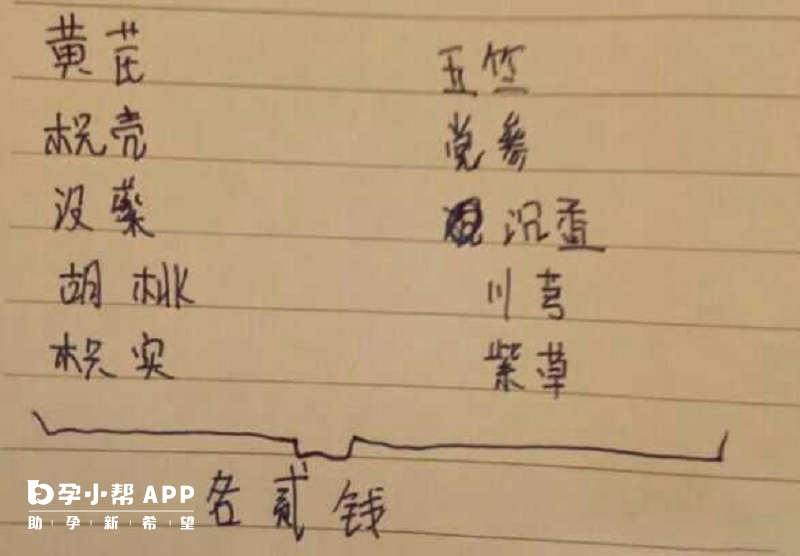 黄芪 五竺
枳壳 党参
没药 沉香
胡桃 川芎
枳实 紫草
各贰钱
孕小帮 APP
助孕新希望